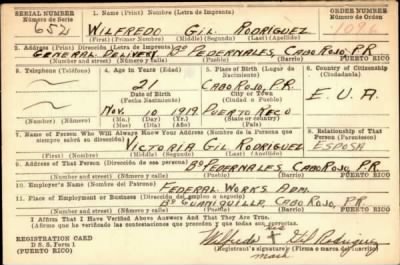 SERIAL NUMBER 1. Name (Print) Nombre (Letra de Imprenta) ORDER NUMBER
Número de Serie Número de Orden
652 WILFREDO G. RODRIGUEZ
(First) (Primer Nombre) (Middle) (Segundo Nombre) (Last) (Apellido)
2. Address (Print) Dirección (Letra de Imprenta)
GENERAL DELIVERY Bo PEDERNALES, CABO ROJO, P.R.
(Number and street) (Número y calle) (Town) (Pueblo) (County) (Municipio) PUERTO RICO
3. Telephone (Teléfono) 4. Age in Years (Edad) 5. Place of Birth (Lugar de Nacimiento) 6. Country of Citizenship (Ciudadanía)
21 CABO ROJO, P.R.
Date of Birth (Fecha Nacimiento) City or Town (Ciudad o Pueblo) E. U. A.
NOV. 16 1919 PUERTO RICO
(Mo.) (Day) (Yr.) (State or country)
7. Name of Person Who Will Always Know Your Address (Nombre de la Persona que siempre sabrá su dirección) 8. Relationship of That Person (Parentesco)
VICTORIA GIL RODRIGUEZ ESPOSA
(First) (Nombre) (Middle) (Last) (Apellido)
9. Address of That Person (Dirección de esa persona)
Bo PEDERNALES, CABO ROJO, P.R.
(Number and street) (Número y calle) (Town) (Pueblo) (County) (Municipio) PUERTO RICO
10. Employer's Name (Nombre del Patrono)
FEDERAL WORKS ADM.
11. Place of Employment or Business (Dirección del empleo o negocio)
Bo GUANIQUILLA, CABO ROJO, P.R.
(Number and street) (Número y calle) (Town) (Pueblo) (County) (Municipio) PUERTO RICO
I Affirm That I Have Verified Above Answers And That They Are True.
Afirmo que he verificado las contestaciones que preceden y que todas son ciertas.
REGISTRATION CARD his
D. S. S. Form 1 Wilfredo X Gil Rodriguez
(PUERTO RICO) Registrant's signature (Firma o marca del inscrito)
mark